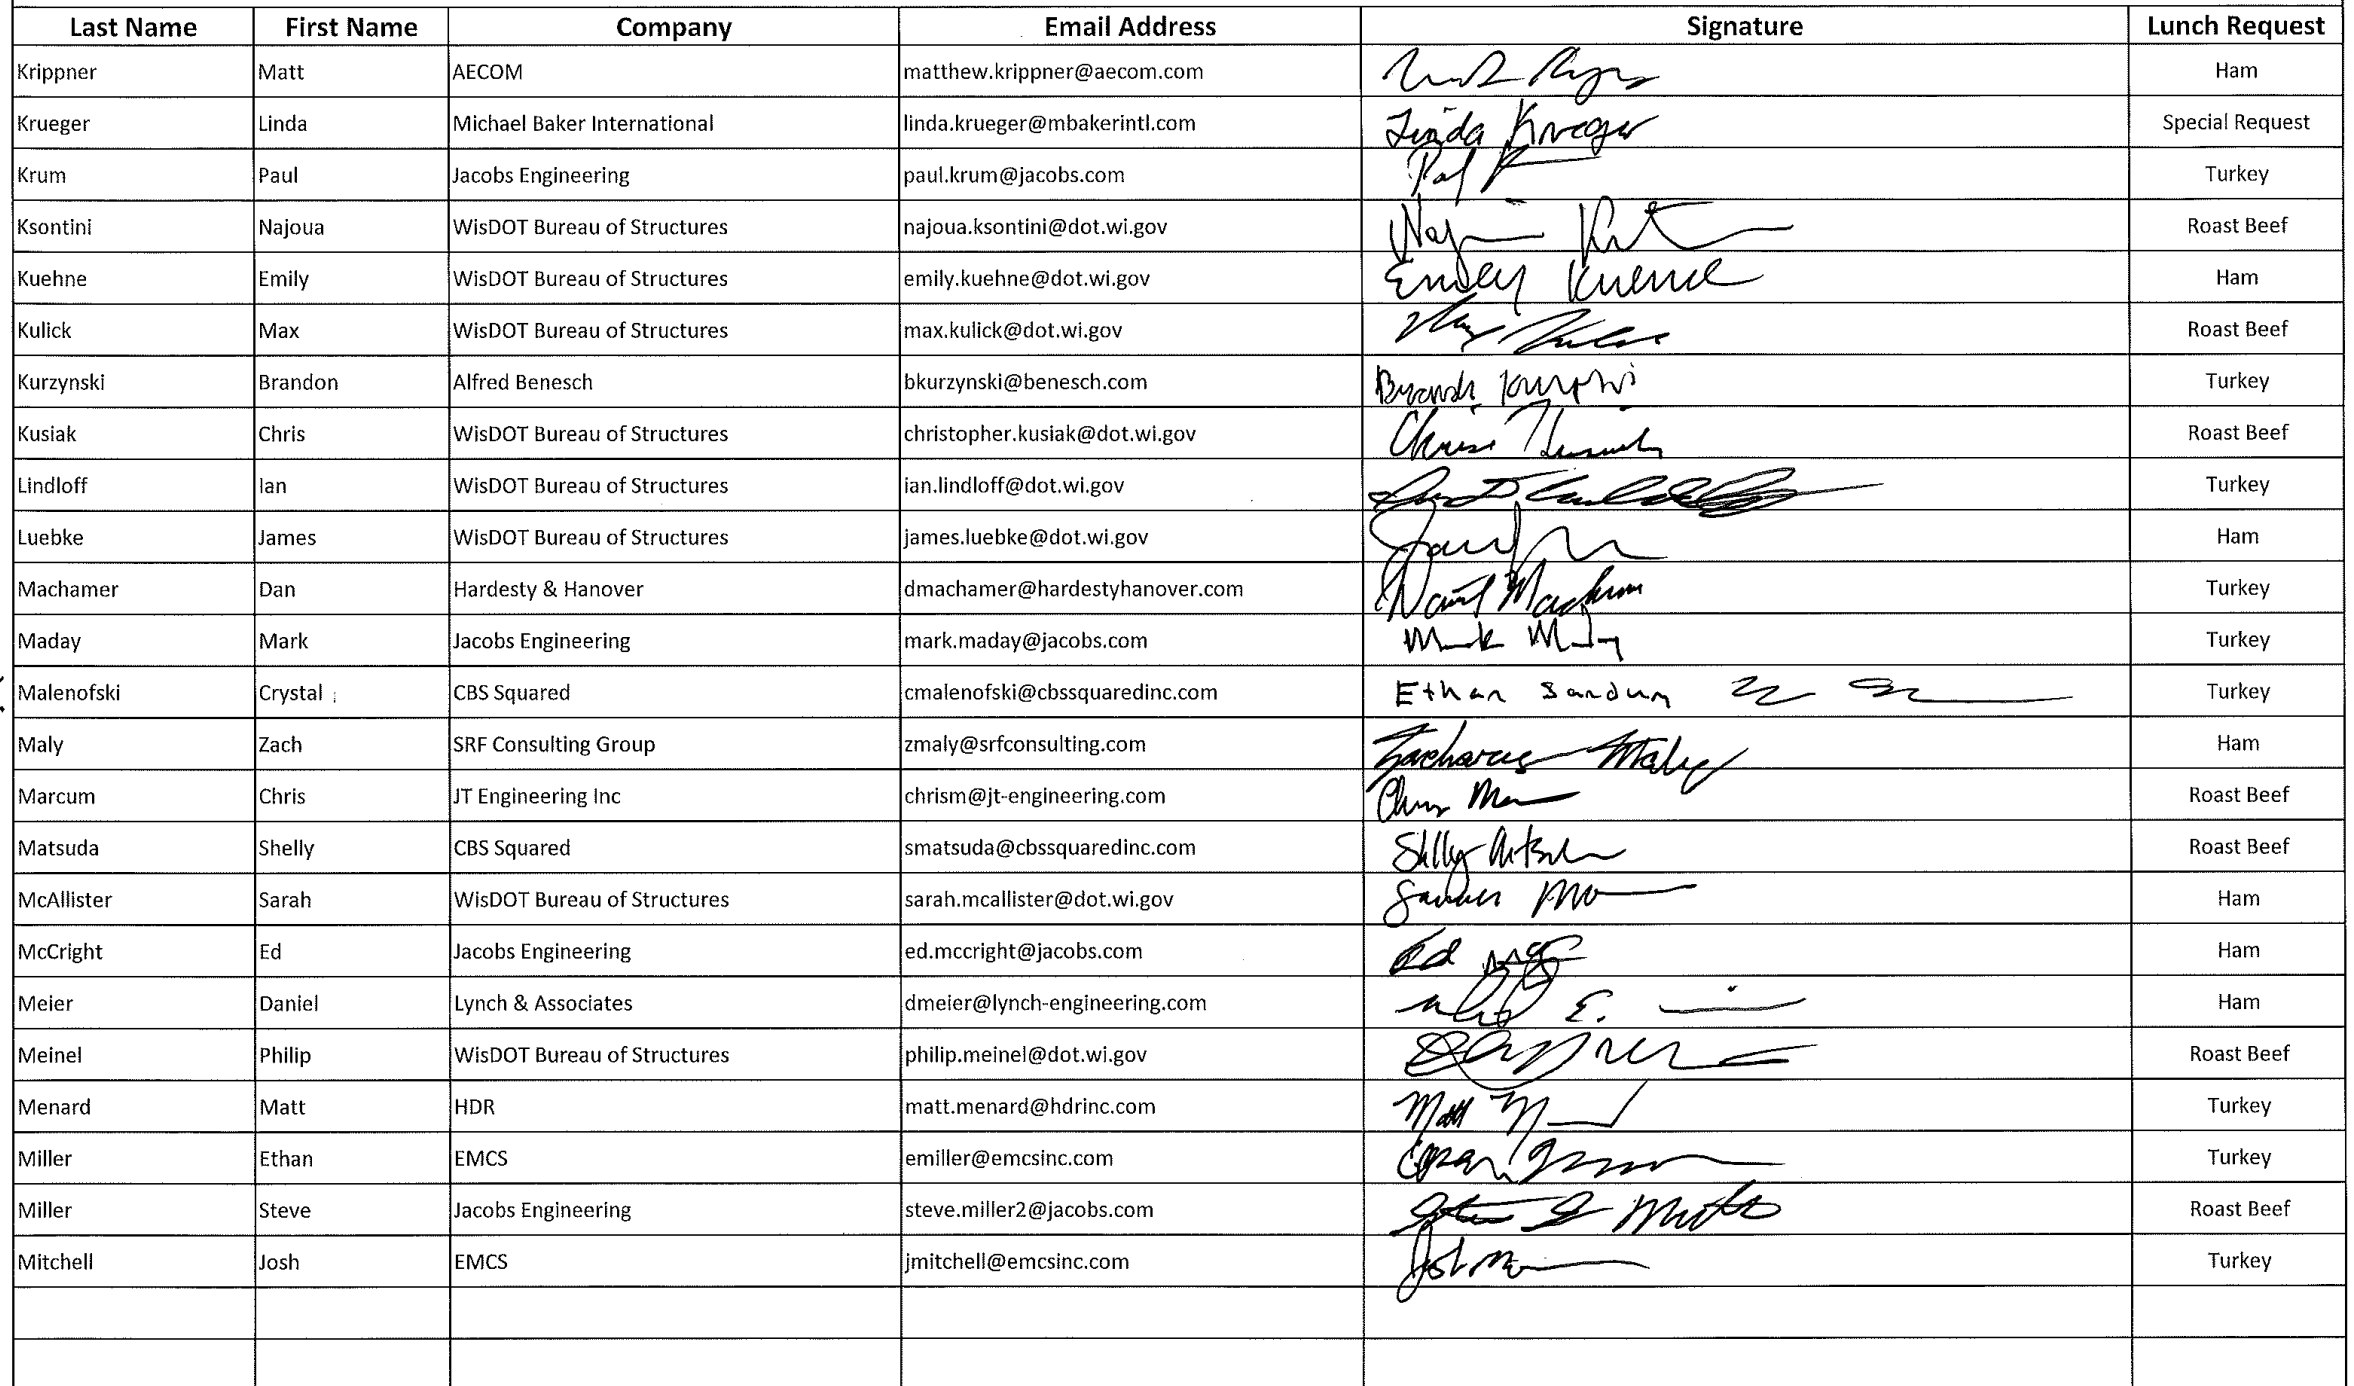 Last Name First Name Company Email Address Signature Lunch Request
Krippner Matt AECOM matthew.krippner@aecom.com Ham
Krueger Linda Michael Baker International linda.krueger@mbakerintl.com Linda Krueger Special Request
Krum Paul Jacobs Engineering paul.krum@jacobs.com Turkey
Ksontini Najoua WisDOT Bureau of Structures najoua.ksontini@dot.wi.gov Roast Beef
Kuehne Emily WisDOT Bureau of Structures emily.kuehne@dot.wi.gov Emily Kuehne Ham
Kulick Max WisDOT Bureau of Structures max.kulick@dot.wi.gov Roast Beef
Kurzynski Brandon Alfred Benesch bkurzynski@benesch.com Turkey
Kusiak Chris WisDOT Bureau of Structures christopher.kusiak@dot.wi.gov Roast Beef
Lindloff Ian WisDOT Bureau of Structures ian.lindloff@dot.wi.gov Turkey
Luebke James WisDOT Bureau of Structures james.luebke@dot.wi.gov Ham
Machamer Dan Hardesty & Hanover dmachamer@hardestyhanover.com Turkey
Maday Mark Jacobs Engineering mark.maday@jacobs.com Turkey
Malenofski Crystal CBS Squared cmalenofski@cbssquaredinc.com Ethan Sandum Turkey
Maly Zach SRF Consulting Group zmaly@srfconsulting.com Ham
Marcum Chris JT Engineering Inc chrism@jt-engineering.com Roast Beef
Matsuda Shelly CBS Squared smatsuda@cbssquaredinc.com Roast Beef
McAllister Sarah WisDOT Bureau of Structures sarah.mcallister@dot.wi.gov Ham
McCright Ed Jacobs Engineering ed.mccright@jacobs.com Ed Ham
Meier Daniel Lynch & Associates dmeier@lynch-engineering.com Ham
Meinel Philip WisDOT Bureau of Structures philip.meinel@dot.wi.gov Roast Beef
Menard Matt HDR matt.menard@hdrinc.com Matt Turkey
Miller Ethan EMCS emiller@emcsinc.com Turkey
Miller Steve Jacobs Engineering steve.miller2@jacobs.com Roast Beef
Mitchell Josh EMCS jmitchell@emcsinc.com Turkey